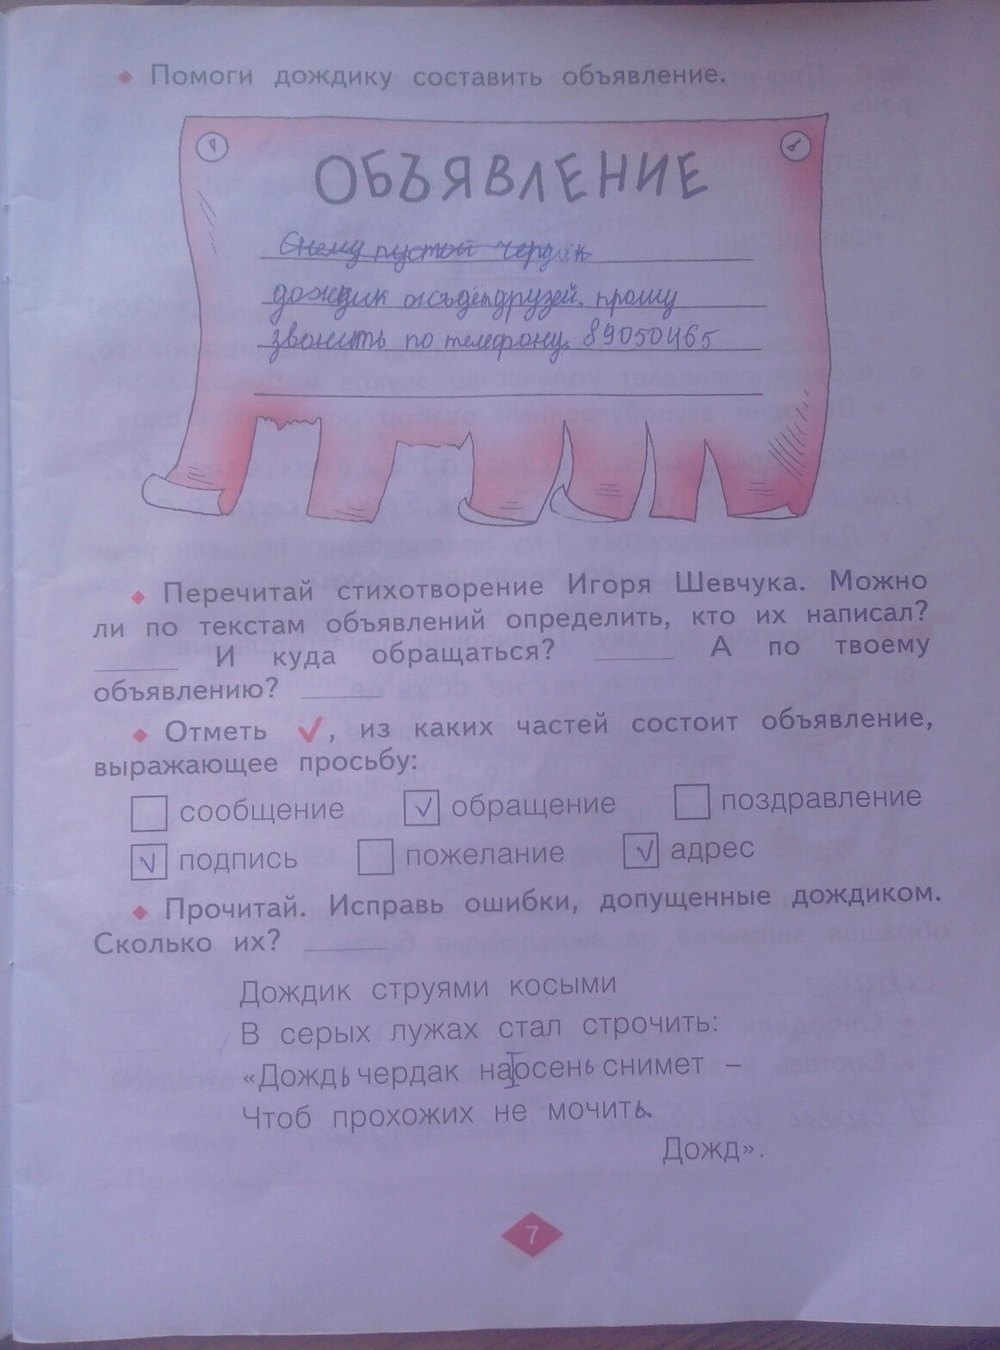 Помоги дождику составить объявление.
ОБЪЯВЛЕНИЕ
Сниму пустой чердак
дождик друзей. прошу
звонить по телефону. 89050465
Перечитай стихотворение Игоря Шевчука. Можно
ли по текстам объявлений определить, кто их написал?
И куда обращаться? А по твоему
объявлению?
Отметь ✓, из каких частей состоит объявление,
выражающее просьбу:
сообщение обращение поздравление
подпись пожелание адрес
Прочитай. Исправь ошибки, допущенные дождиком.
Сколько их?
Дождик струями косыми
В серых лужах стал строчить:
«Дождь чердак на осень снимет –
Чтоб прохожих не мочить.
Дожд».
7